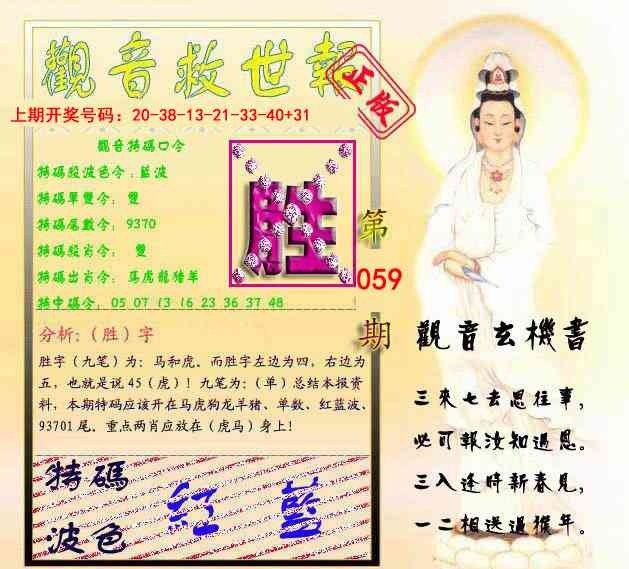 觀音救世報
正版
上期开奖号码：20-38-13-21-33-40+31
觀音特碼口令
特碼段波色令：藍波
特碼單雙令：雙
特碼尾數令：9370
特碼段肖令：雙
特碼出肖令：马虎龍猪羊
特中碼令：05 07 13 16 23 36 37 48
胜
第
059
期
分析:（胜）字
胜字（九笔）为：马和虎。而胜字左边为四，右边为
五，也就是说 45（虎）！九笔为：（单）总结本报资
料，本期特码应该开在马虎狗龙羊猪、单数、红蓝波、
93701 尾。重点两肖应放在（虎马）身上！
特碼
波色
紅 藍
觀音玄機書
三來七去思往事，
必可報汝知過恩。
三入逢時新春見，
一二相送過猴年。